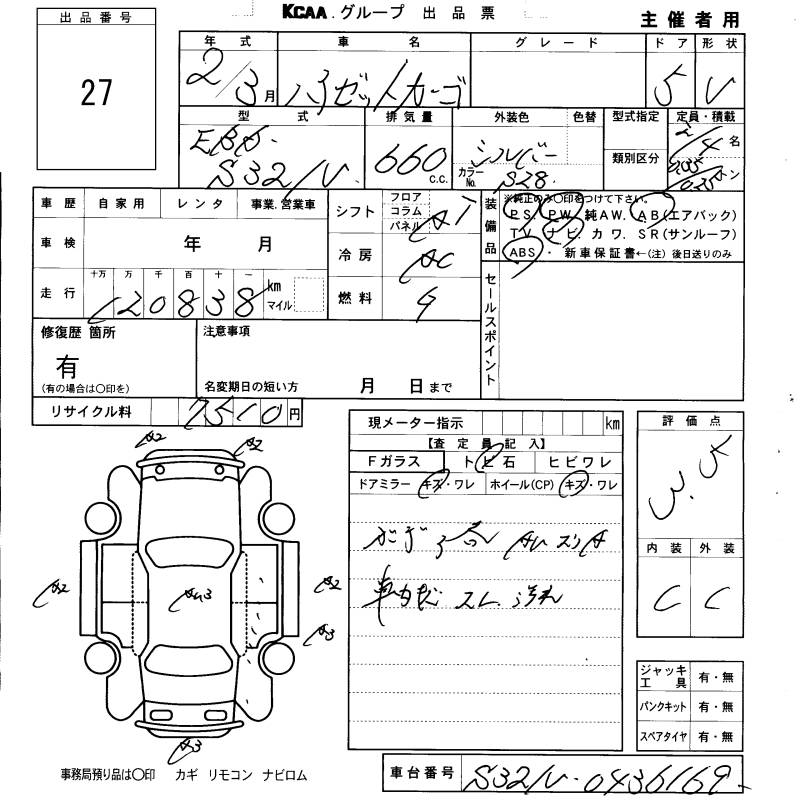 KCAA.グループ 出品票
主催者用
出品番号
27
年式 車名 グレード ドア 形状
2/3月 ハイゼットカーゴ 5 V
型式 排気量 外装色 色替 型式指定 定員・積載
EBD-
S321V 660 c.c. シルバー カラーNo. S28 類別区分 2/4名
トン
車歴 自家用 レンタ 事業.営業車
車検 年 月
走行 十万 万 千 百 十 一
120838 km マイル
シフト フロア コラム パネル AT
冷房 AC
燃料 G
装備品 ※純正のみ〇印をつけて下さい。
PS. PW. 純AW. AB(エアバック)
TV. ナビ. カワ. SR(サンルーフ)
ABS・ 新車保証書←(注)後日送りのみ
セールスポイント
修復歴 箇所
有
(有の場合は〇印を)
注意事項
名変期日の短い方 月 日まで
リサイクル料 7510円
現メーター指示 km
【査定員記入】
Fガラス トビ石 ヒビワレ
ドアミラー キズ・ワレ ホイール(CP) キズ・ワレ
車内 スレ.汚れ
評価点
3.5
内装 外装
C C
A2
A2
A2
A2
A3
A3
ジャッキ工具 有・無
パンクキット 有・無
スペアタイヤ 有・無
事務局預り品は〇印 カギ リモコン ナビロム
車台番号 S321V-0436169